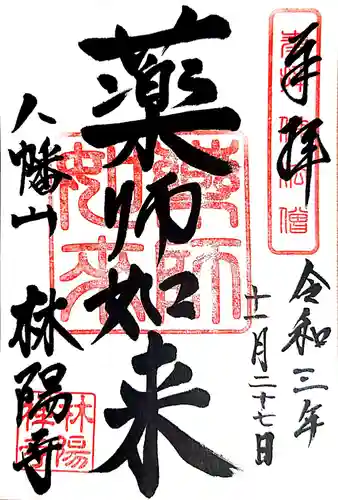 奉拜
令和三年
十一月二十七日
薬師如来
八幡山
林陽寺
薬師如来
林陽
禅寺